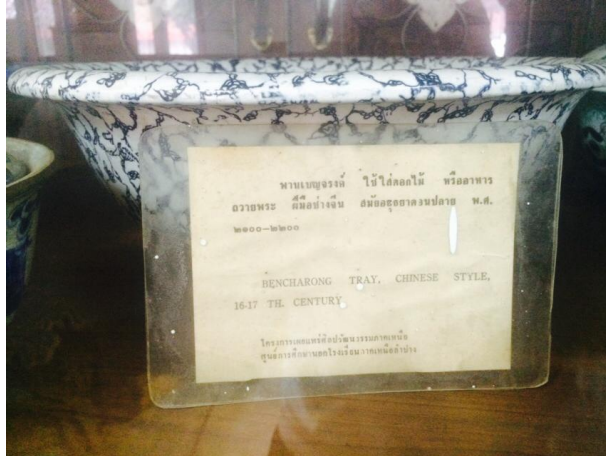 พานเบญจรงค์ ใช้ใส่ดอกไม้ หรืออาหาร
ถวายพระ ฝีมือช่างจีน สมัยอยุธยาตอนปลาย พ.ศ.
๒๑๐๐-๒๒๐๐
BENCHARONG TRAY, CHINESE STYLE,
16-17 TH. CENTURY
โครงการเผยแพร่ศิลปวัฒนธรรมภาคเหนือ
ศูนย์การศึกษานอกโรงเรียนภาคเหนือลำปาง